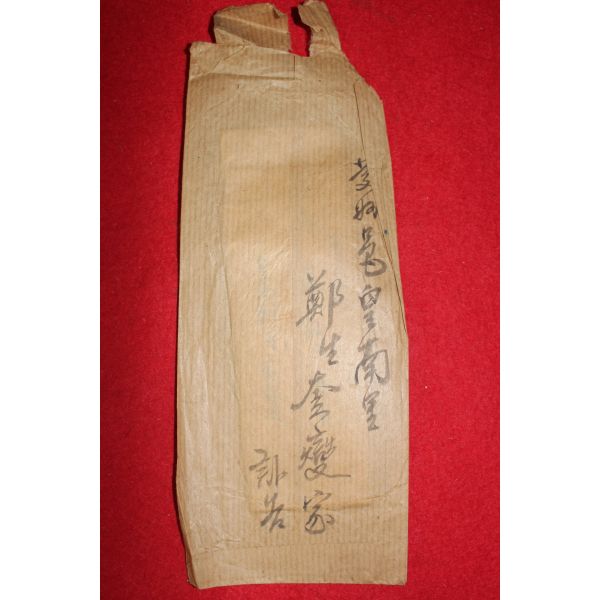 慶州邑皇南里
鄭生奎燮家
訃告